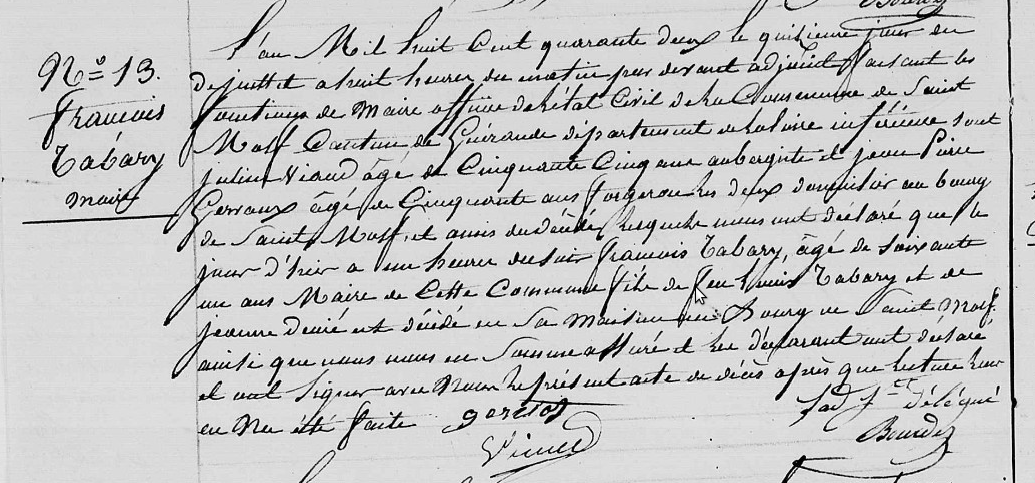 Bourdy
N° 13.
François
Tabary
maire
L'an Mil huit Cent quarante deux le quizieme jour du
de juillet a huit heures du matin par devant adjoint faisant les
fonctions de Maire officie de létat Civil de la Commune de Saint
Molf Canton de Guérande département de la loire inférieure sont
julien Viaud âgé de Cinquante Cinq ans aubergiste et jean Pierre
âgé de Cinquante ans forgeron les deux domicilier au bourg
de Saint Molf, et amis du décédé lesquels nous ont déclaré que le
jour d'hier a une heures du soir François Tabary, âgé de soixante
un ans Maire de Cette Commune fils de feu Louis Tabary et de
jeanne est décédé en Sa Maison au Bourg de Saint Molf.
ainsi que nous nous en Somme assuré et les déclarant ont déclaré
et ont Signer avec Nous le présent acte de décès après que lecture leur
en na été faite
Délégué
Bourdy